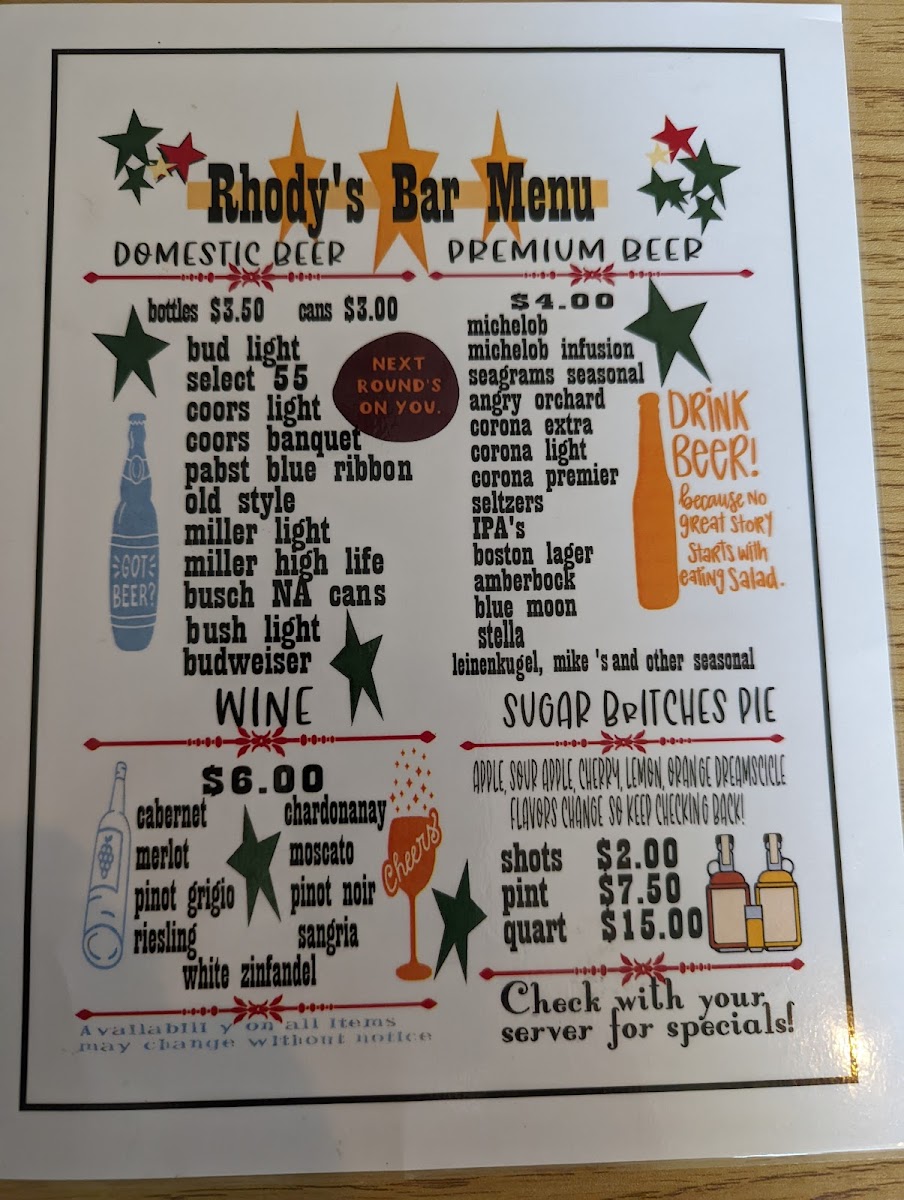 Rhody's Bar Menu
DOMESTIC BEER
bottles $3.50 cans $3.00
bud light
select 55
coors light
coors banquet
pabst blue ribbon
old style
miller light
miller high life
busch NA cans
bush light
budweiser
NEXT
ROUND'S
ON YOU.
GOT
BEER?
PREMIUM BEER
$4.00
michelob
michelob infusion
seagrams seasonal
angry orchard
corona extra
corona light
corona premier
seltzers
IPA's
boston lager
amberbock
blue moon
stella
leinenkugel, mike 's and other seasonal
DRINK
BEER!
because NO
great story
starts with
eating salad.
WINE
$6.00
cabernet chardonanay
merlot moscato
pinot grigio pinot noir
riesling sangria
white zinfandel
Cheers
Availabili y on all items
may change without notice
SUGAR BrITCHES PIE
APPLE, SOUR APPLE, CHERRY, LEMON, ORANGE DREAMSCICLE
FLAVORS CHANGE SO KEEP CHECKING BACK!
shots $2.00
pint $7.50
quart $15.00
Check with your
server for specials!